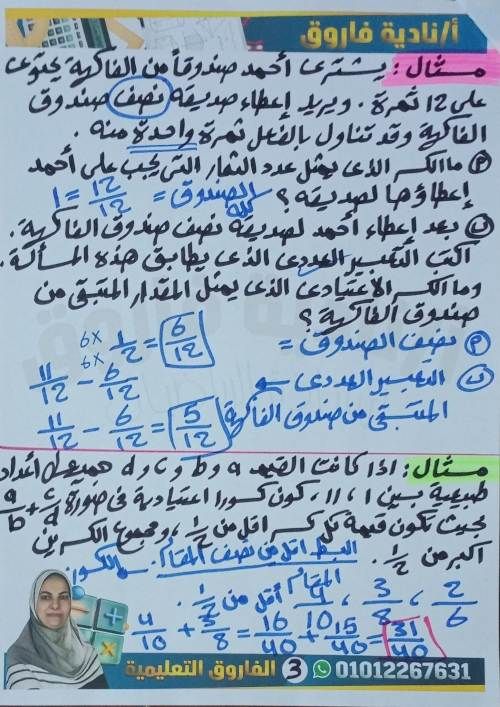 أ/نادية فاروق
مثال: يشترى أحمد صندوقاً من الفاكهة يحتوى
على 12 ثمرة. ويريد إعطاء صديقه نصف صندوق
الفاكهة وقد تناول بالفعل ثمرة واحدة منه.
أ) ما الكسر الذى يمثل عدد الثمار التى يجب على أحمد
إعطاؤها لصديقه؟ الصندوق كله = 12/12 = 1
ب) بعد إعطاء أحمد لصديقه نصف صندوق الفاكهة.
اكتب التعبير العددى الذى يطابق هذه المسألة.
وما الكسر الاعتيادى الذى يمثل المقدار المتبقى من
صندوق الفاكهة؟
أ) نصف الصندوق = 1/2 ×6 ×6 = 6/12
ب) التعبير العددى 11/12 - 6/12
المتبقى من صندوق الفاكهة 11/12 - 6/12 = 5/12
مثال: اذا كانت القيم a و b و c و d هى أعداد
طبيعية بين 1 ، 11 ، كون كسورا اعتيادية فى صورة a/b + c/d
بحيث تكون قيمة كل كسر اقل من 1/2 ، ومجموع الكسرين
أكبر من 1/2 . البسط اقل من نصف المقام. الكسور
المقام أقل من 1/2 . 4/10 ، 3/8 ، 2/6
4/10 + 3/8 = 16/40 + 15/40 = 31/40
الفاروق التعليمية 3 01012267631